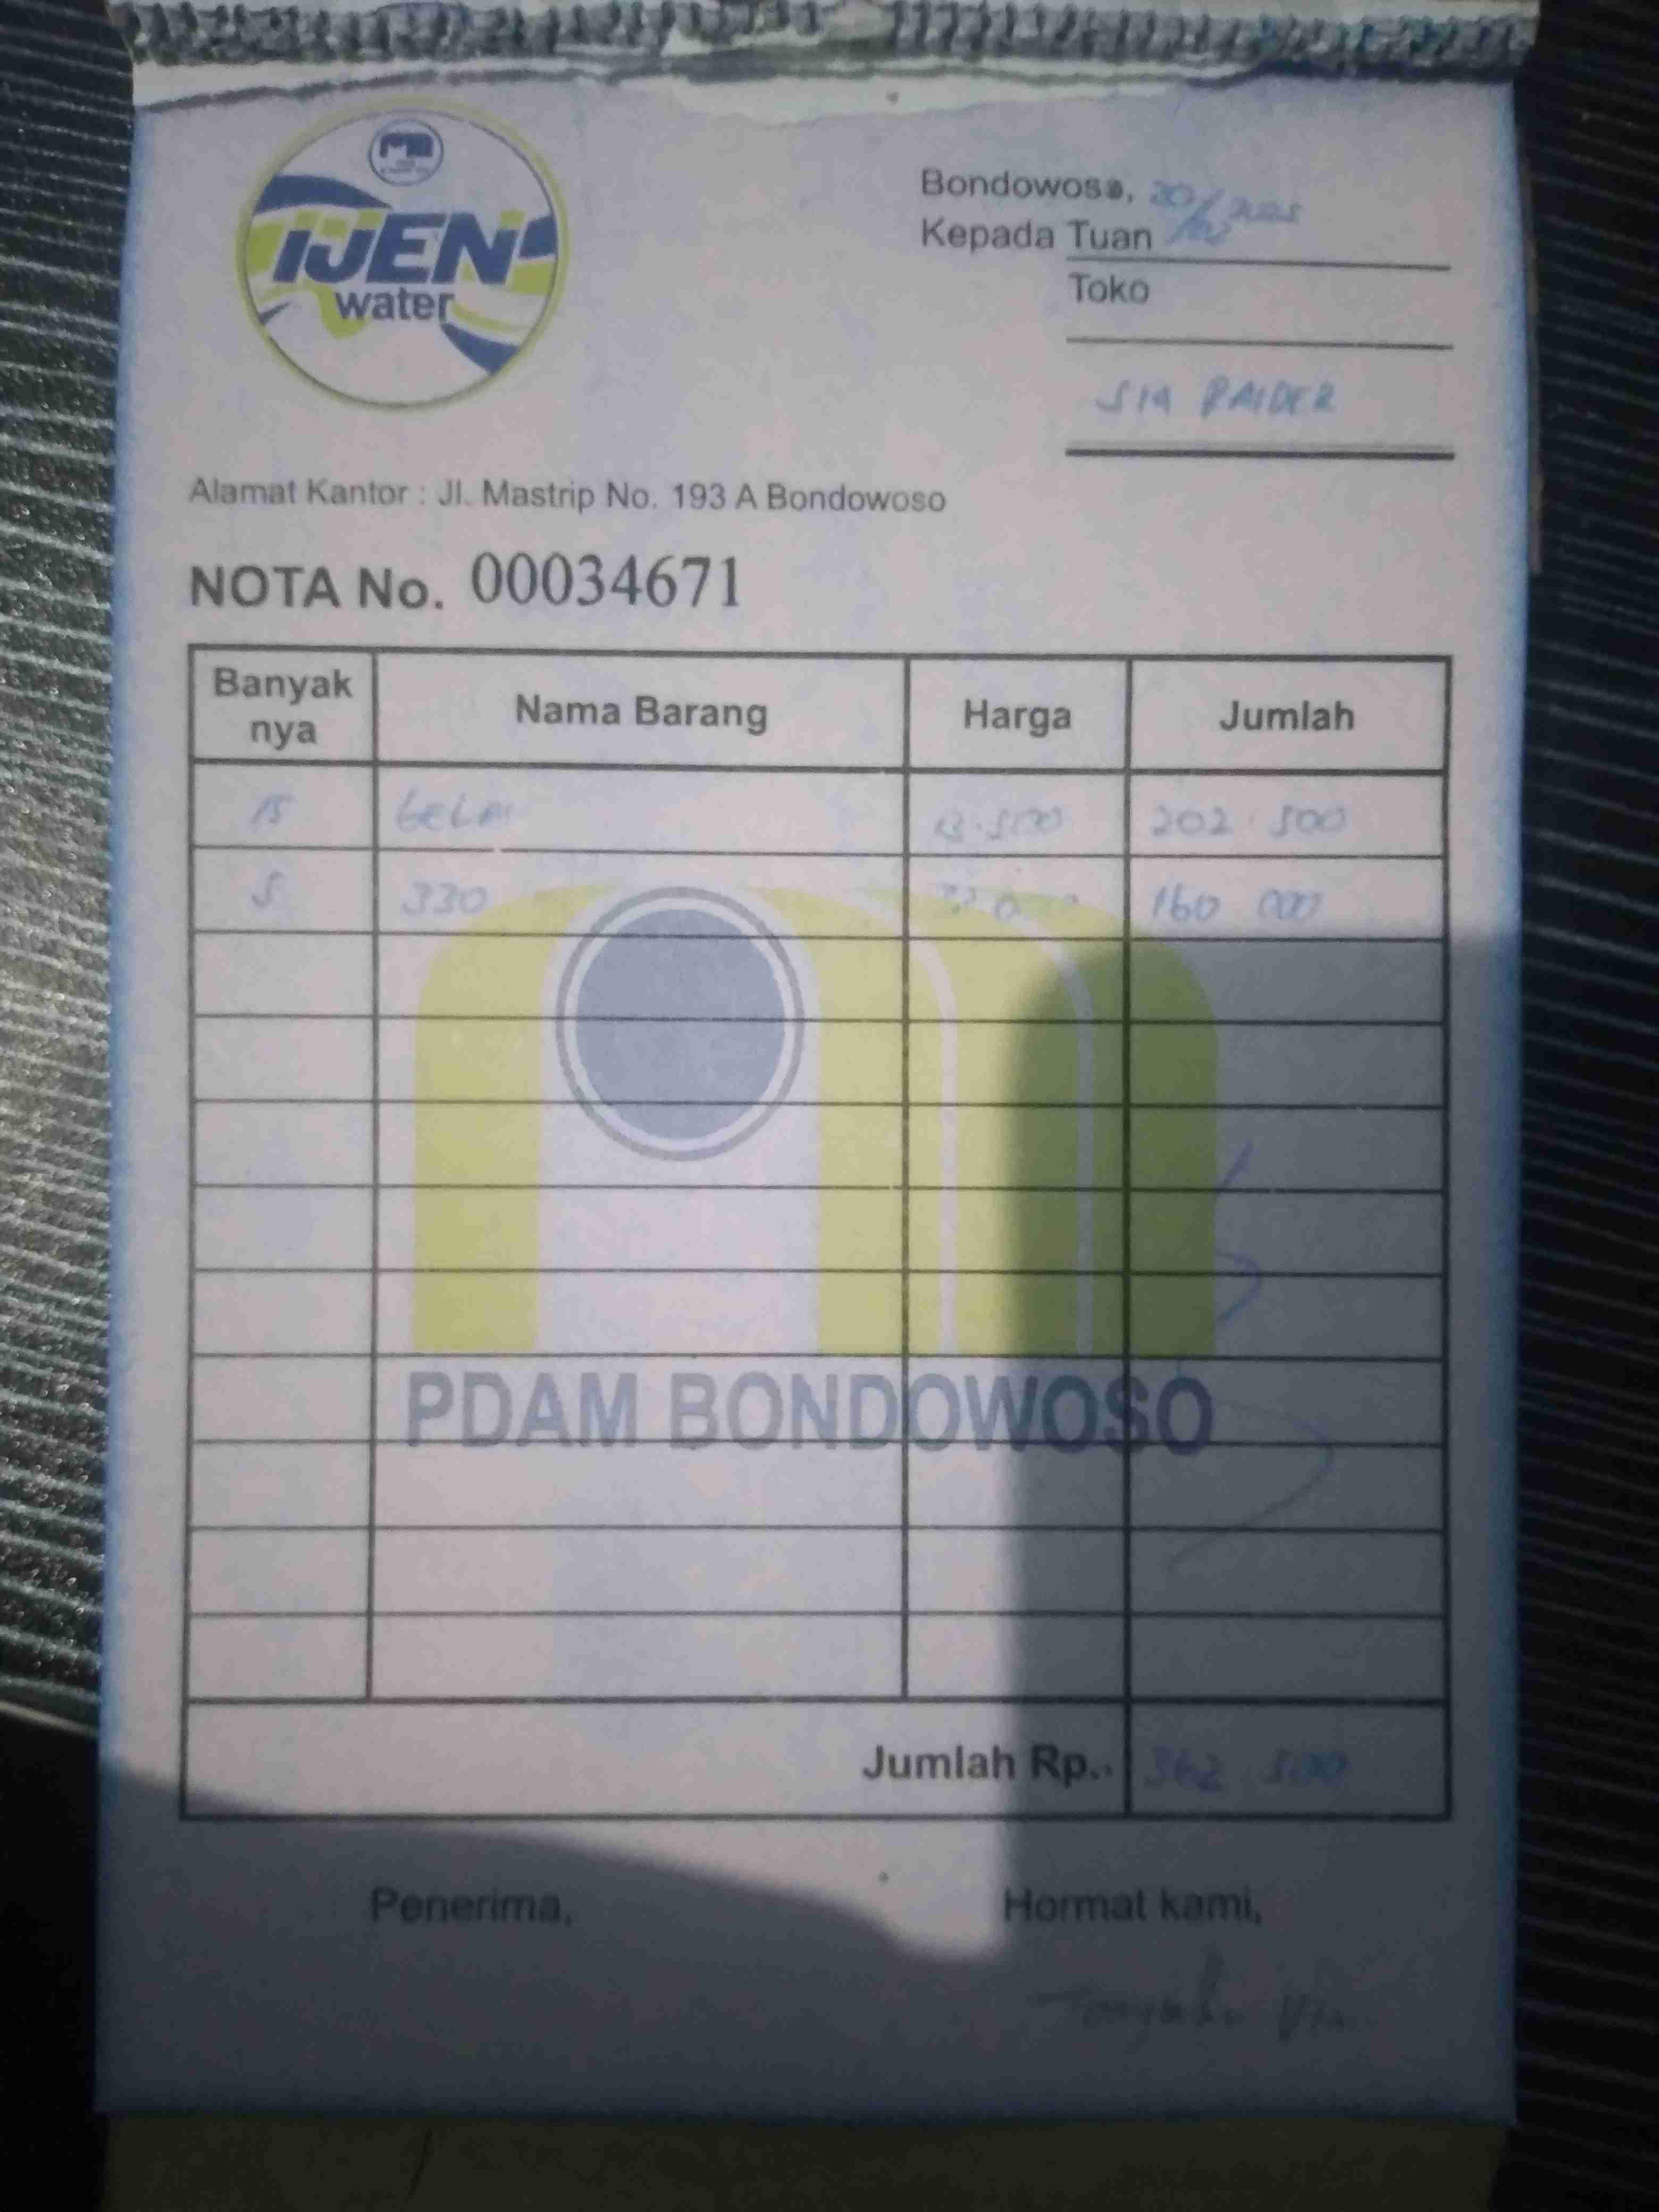 IJEN
water
Bondowoso, 20/12 2025
Kepada Tuan
Toko
514 RAIDER
Alamat Kantor : Jl. Mastrip No. 193 A Bondowoso
NOTA No. 00034671
Banyak nya Nama Barang Harga Jumlah
15 GELAS 13.500 202 500
5 330 32 000 160 000
PDAM BONDOWOSO
Jumlah Rp.. 362 500
Penerima, Hormat kami,